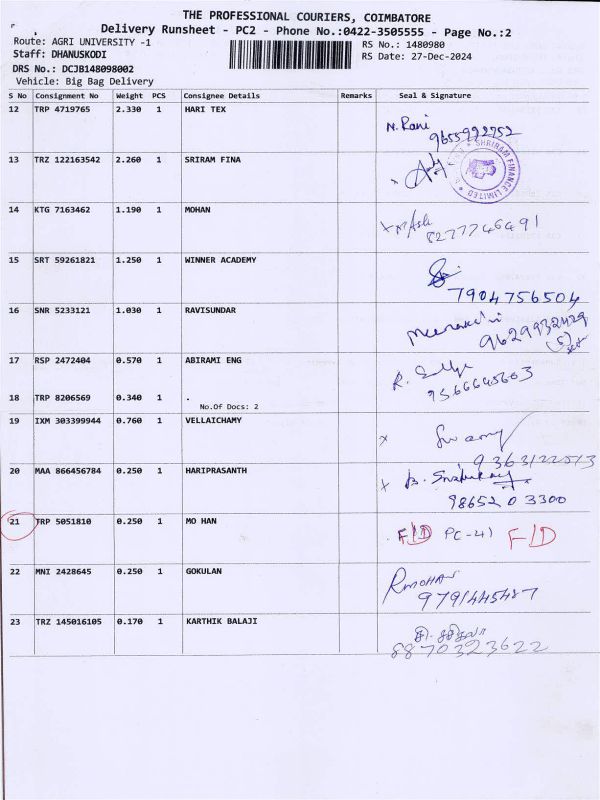 THE PROFESSIONAL COURIERS, COIMBATORE
Delivery Runsheet - PC2 - Phone No.:0422-3505555 - Page No.:2
Route: AGRI UNIVERSITY -1
RS No.: 1480980
Staff: DHANUSKODI
RS Date: 27-Dec-2024
DRS No.: DCJB148098002
Vehicle: Big Bag Delivery
S No Consignment No Weight PCS Consignee Details Remarks Seal & Signature
12 TRP 4719765 2.330 1 HARI TEX
N. Rani
9655992752
13 TRZ 122163542 2.260 1 SRIRAM FINA
SHRIRAM FINANCE LIMITED
14 KTG 7163462 1.190 1 MOHAN
8277746491
15 SRT 59261821 1.250 1 WINNER ACADEMY
7904756504
16 SNR 5233121 1.030 1 RAVISUNDAR
9629932429
17 RSP 2472404 0.570 1 ABIRAMI ENG
9566645603
18 TRP 8206569 0.340 1 .
No.Of Docs: 2
19 IXM 303399944 0.760 1 VELLAICHAMY
Swamy
9363122513
20 MAA 866456784 0.250 1 HARIPRASANTH
98652 03300
21 TRP 5051810 0.250 1 MO HAN
F/D PC-41 F/D
22 MNI 2428645 0.250 1 GOKULAN
RMOHAN
9791445487
23 TRZ 145016105 0.170 1 KARTHIK BALAJI
8870323622